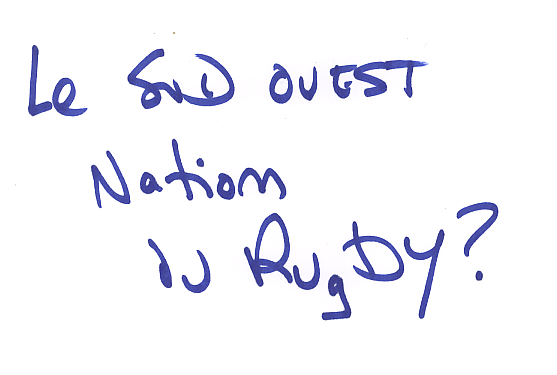 Le SUD OUEST
Nation
du Rugby?